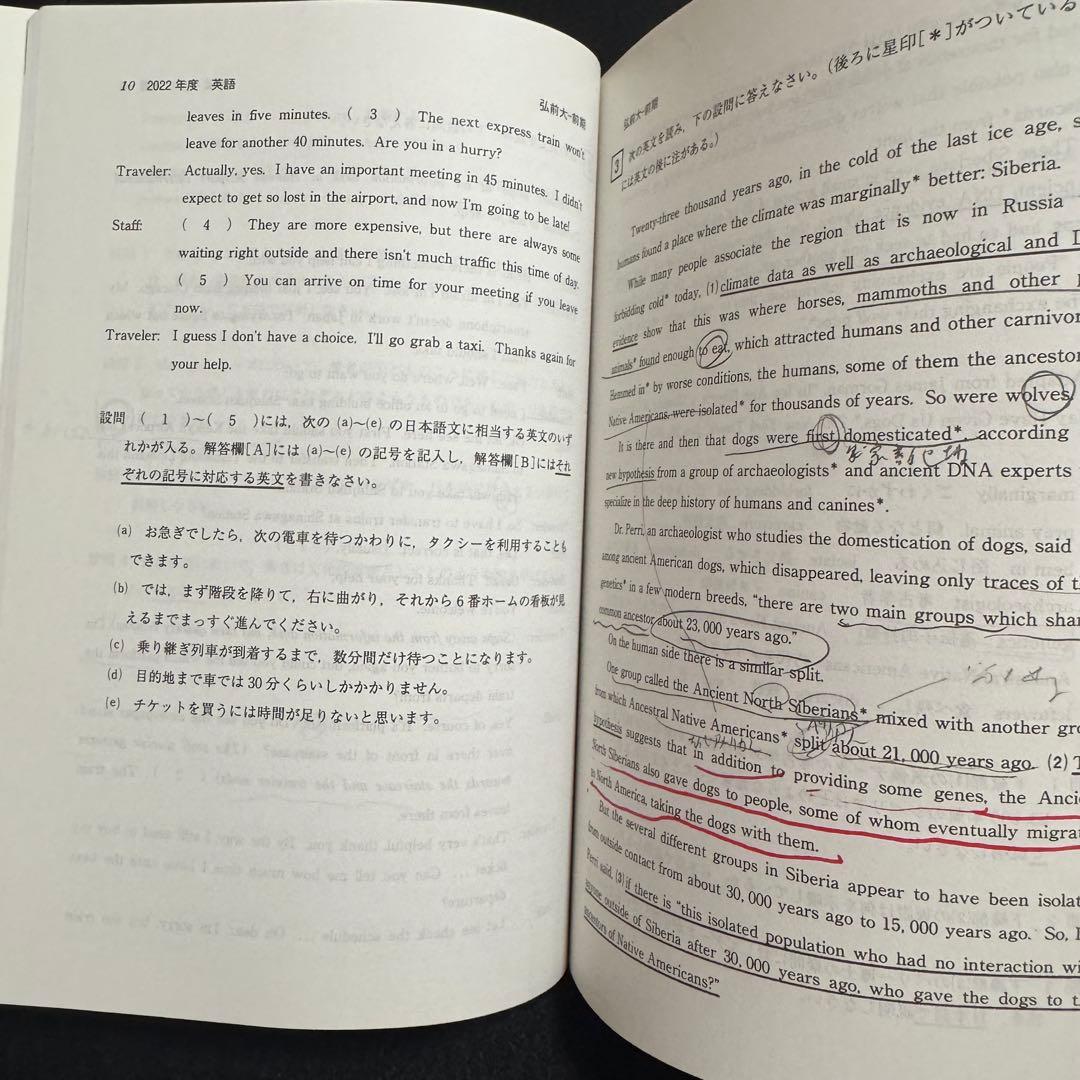 10 2022年度 英語
弘前大-前期
leaves in five minutes. ( 3 ) The next express train won't
leave for another 40 minutes. Are you in a hurry?
Traveler: Actually, yes. I have an important meeting in 45 minutes. I didn't
expect to get so lost in the airport, and now I'm going to be late!
Staff: ( 4 ) They are more expensive, but there are always some
waiting right outside and there isn't much traffic this time of day.
( 5 ) You can arrive on time for your meeting if you leave
now.
Traveler: I guess I don't have a choice. I'll go grab a taxi. Thanks again for
your help.
設問 ( 1 )~( 5 )には,次の (a)~(e) の日本語文に相当する英文のいず
れかが入る。解答欄[A]には (a)~(e) の記号を記入し,解答欄[B]にはそれ
ぞれの記号に対応する英文を書きなさい。
(a) お急ぎでしたら,次の電車を待つかわりに,タクシーを利用することも
できます。
(b) では,まず階段を降りて,右に曲がり,それから6番ホームの看板が見
えるまでまっすぐ進んでください。
(c) 乗り継ぎ列車が到着するまで,数分間だけ待つことになります。
(d) 目的地まで車では30分くらいしかかかりません。
(e) チケットを買うには時間が足りないと思います。
弘前大-前期
3 次の英文を読み,下の設問に答えなさい。(後ろに星印[*]がついている
には英文の後に注がある。)
Twenty-three thousand years ago, in the cold of the last ice age,
humans found a place where the climate was marginally* better: Siberia.
While many people associate the region that is now in Russia
forbidding cold* today, (1)climate data as well as archaeological and
evidence show that this was where horses, mammoths and other
animals* found enough to eat, which attracted humans and other
Hemmed in* by worse conditions, the humans, some of them the
Native Americans, were isolated* for thousands of years. So were wolves.
It is there and then that dogs were first domesticated*, according
new hypothesis from a group of archaeologists* and ancient DNA experts
specialize in the deep history of humans and canines*.
Dr. Perri, an archaeologist who studies the domestication of dogs, said
among ancient American dogs, which disappeared, leaving only traces of
genetics* in a few modern breeds, "there are two main groups which
common ancestor about 23,000 years ago."
On the human side there is a similar split.
One group called the Ancient North Siberians* mixed with another
from which Ancestral Native Americans* split about 21,000 years ago. (2)
hypothesis suggests that in addition to providing some genes, the
North Siberians also gave dogs to people, some of whom eventually
to North America, taking the dogs with them.
But the several different groups in Siberia appear to have been
from outside contact from about 30,000 years ago to 15,000 years ago. So,
Perri said, (3)if there is "this isolated population who had no interaction
anyone outside of Siberia after 30,000 years ago, who gave the dogs to
ancestors of Native Americans?"